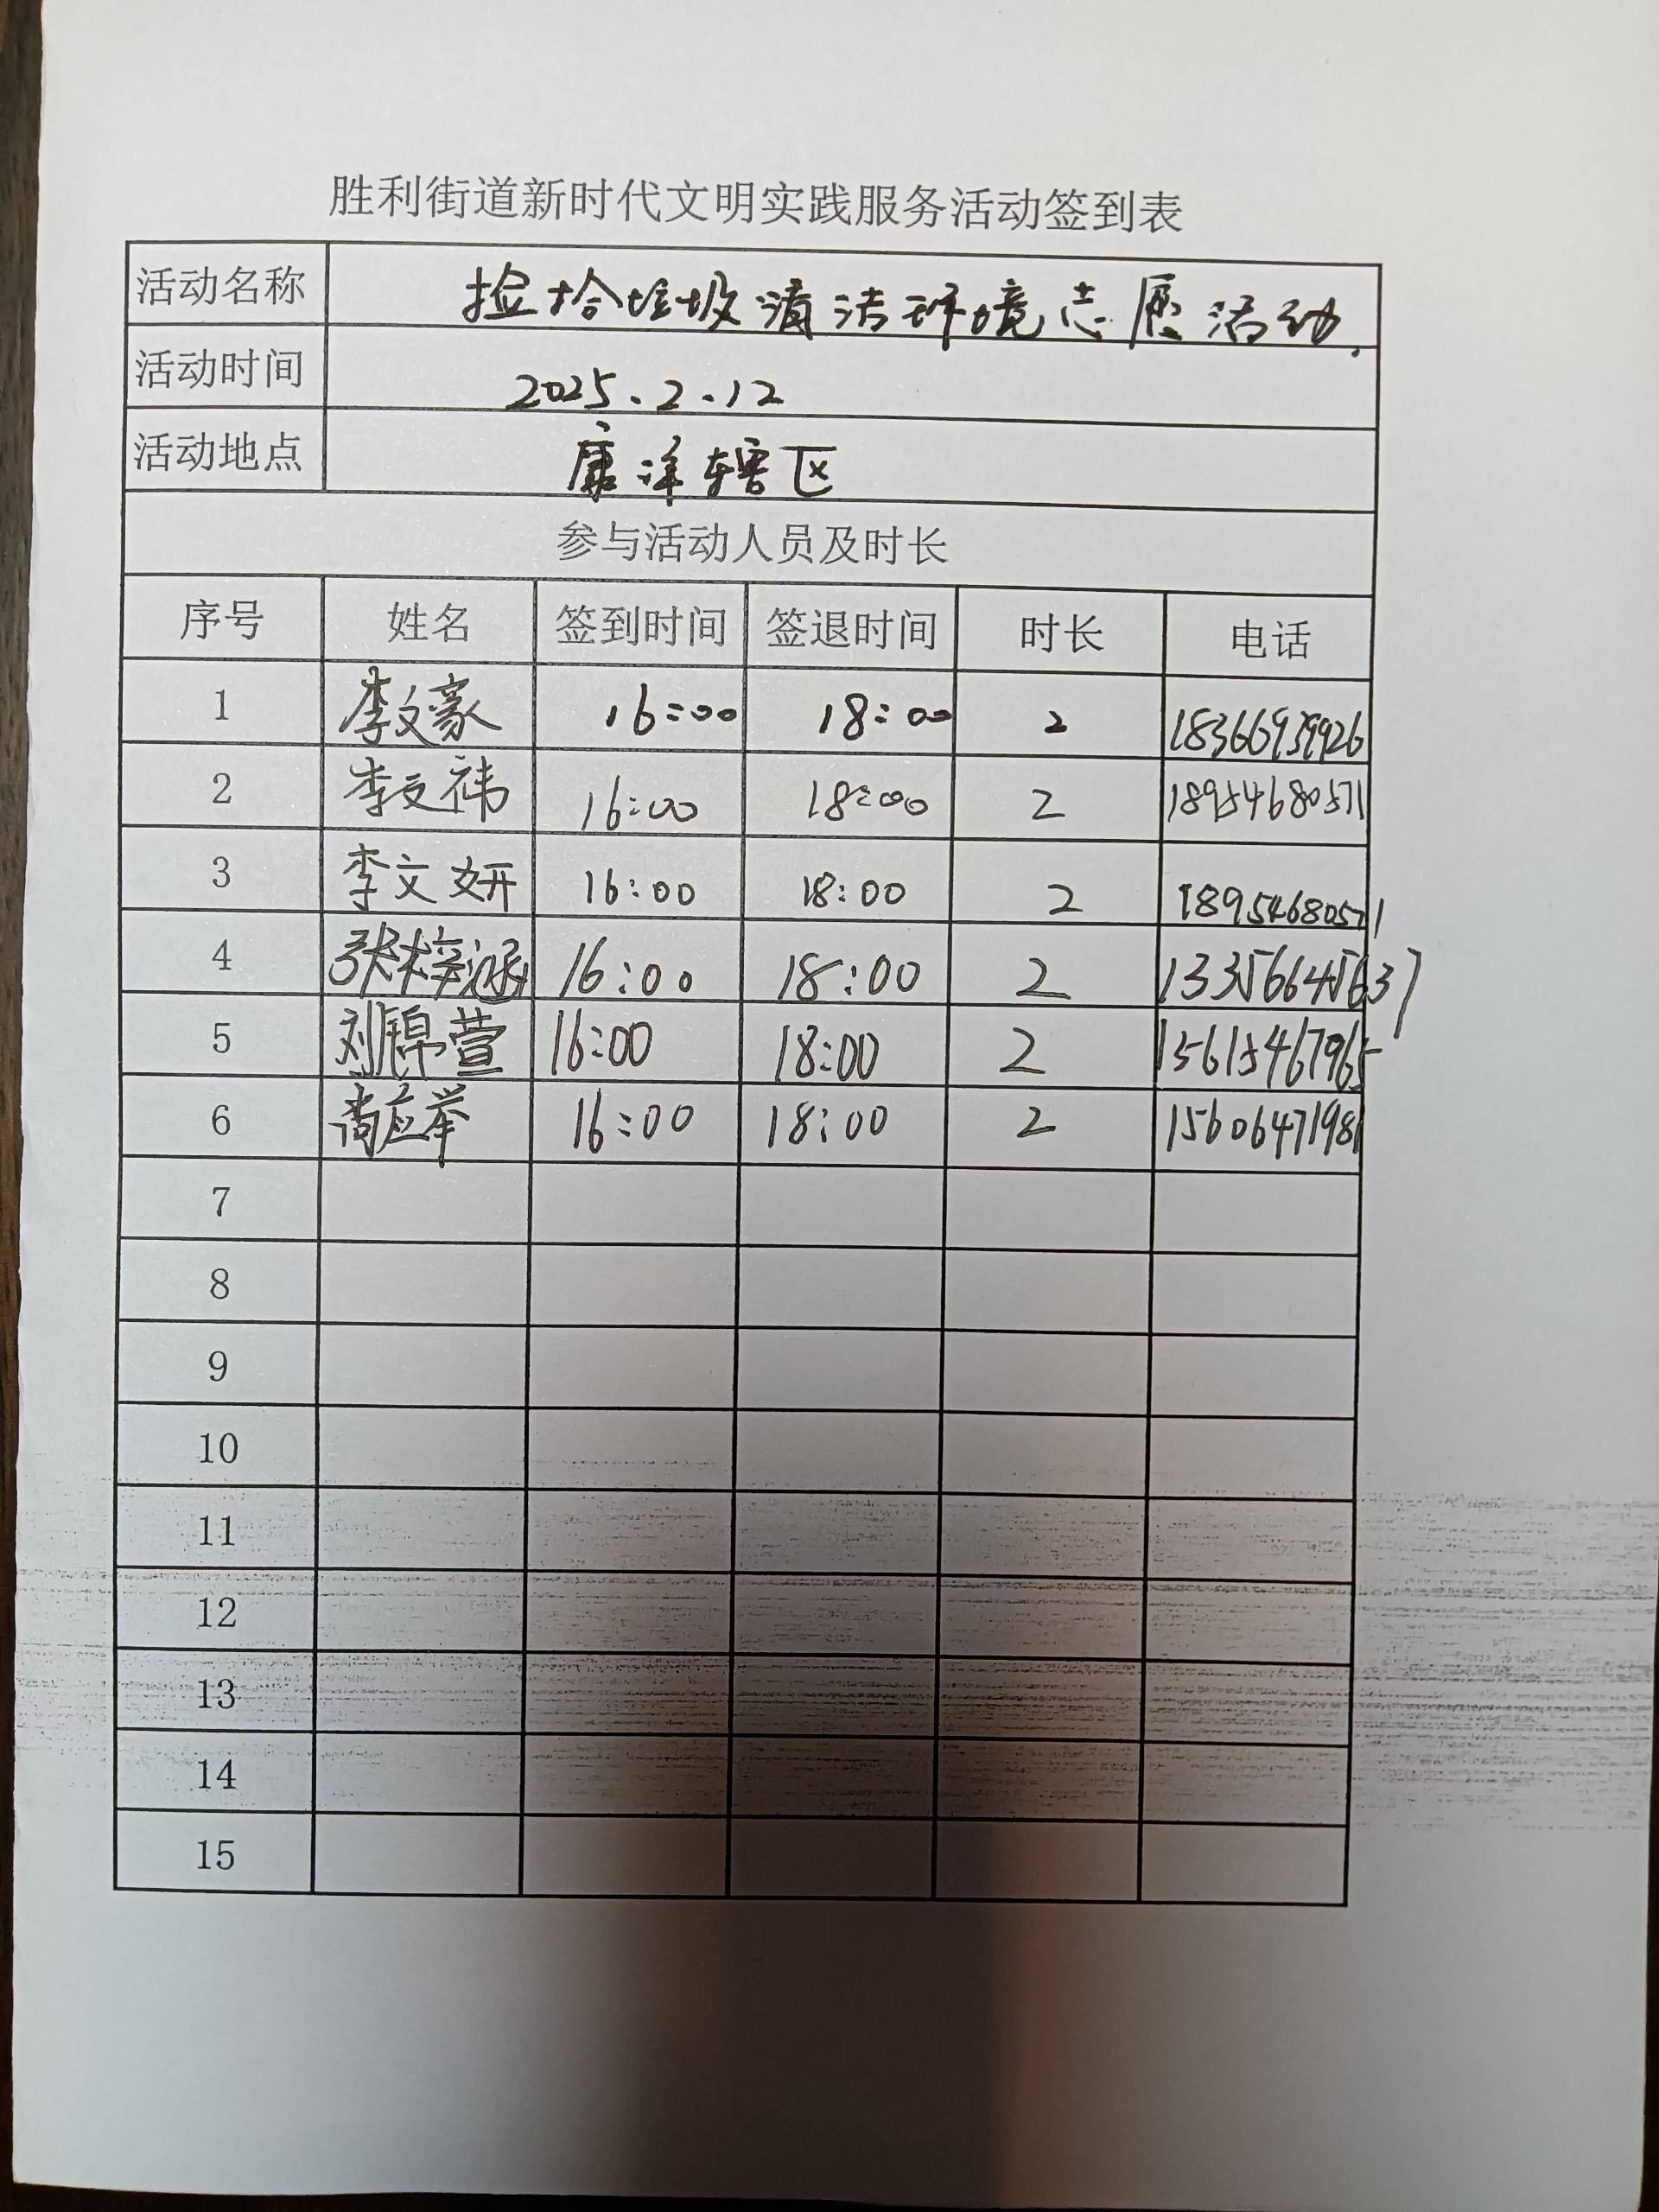 胜利街道新时代文明实践服务活动签到表
活动名称 捡拾垃圾清洁环境志愿活动.
活动时间 2025.2.12
活动地点 康洋辖区
参与活动人员及时长
序号 姓名 签到时间 签退时间 时长 电话
1 李文豪 16:00 18:00 2
2 李文祎 16:00 18:00 2 18954680571
3 李文妍 16:00 18:00 2 18954680571
4 张梓涵 16:00 18:00 2 13356645637
5 刘锦萱 16:00 18:00 2 15615467965
6 尚应举 16:00 18:00 2 15606471981
7
8
9
10
11
12
13
14
15